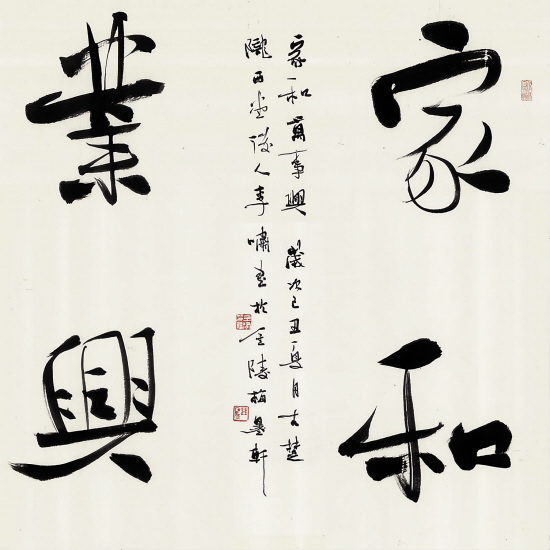 家和
業興
家和萬事興 歲次己丑夏月古楚
隴西堂後人李嘯書於金陵梅墨軒